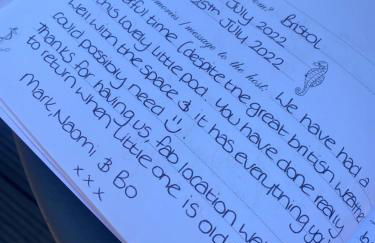 July 2022
Bristol
25th July 2022
memories / message to the host:
We have had a
time (despite the great british weather
lovely little pod. You have done really
well with the space & it has everything you
could possibly need :)
Thanks for having us, fab location
to return when little one is old
Mark, Naomi & Bo
x x x